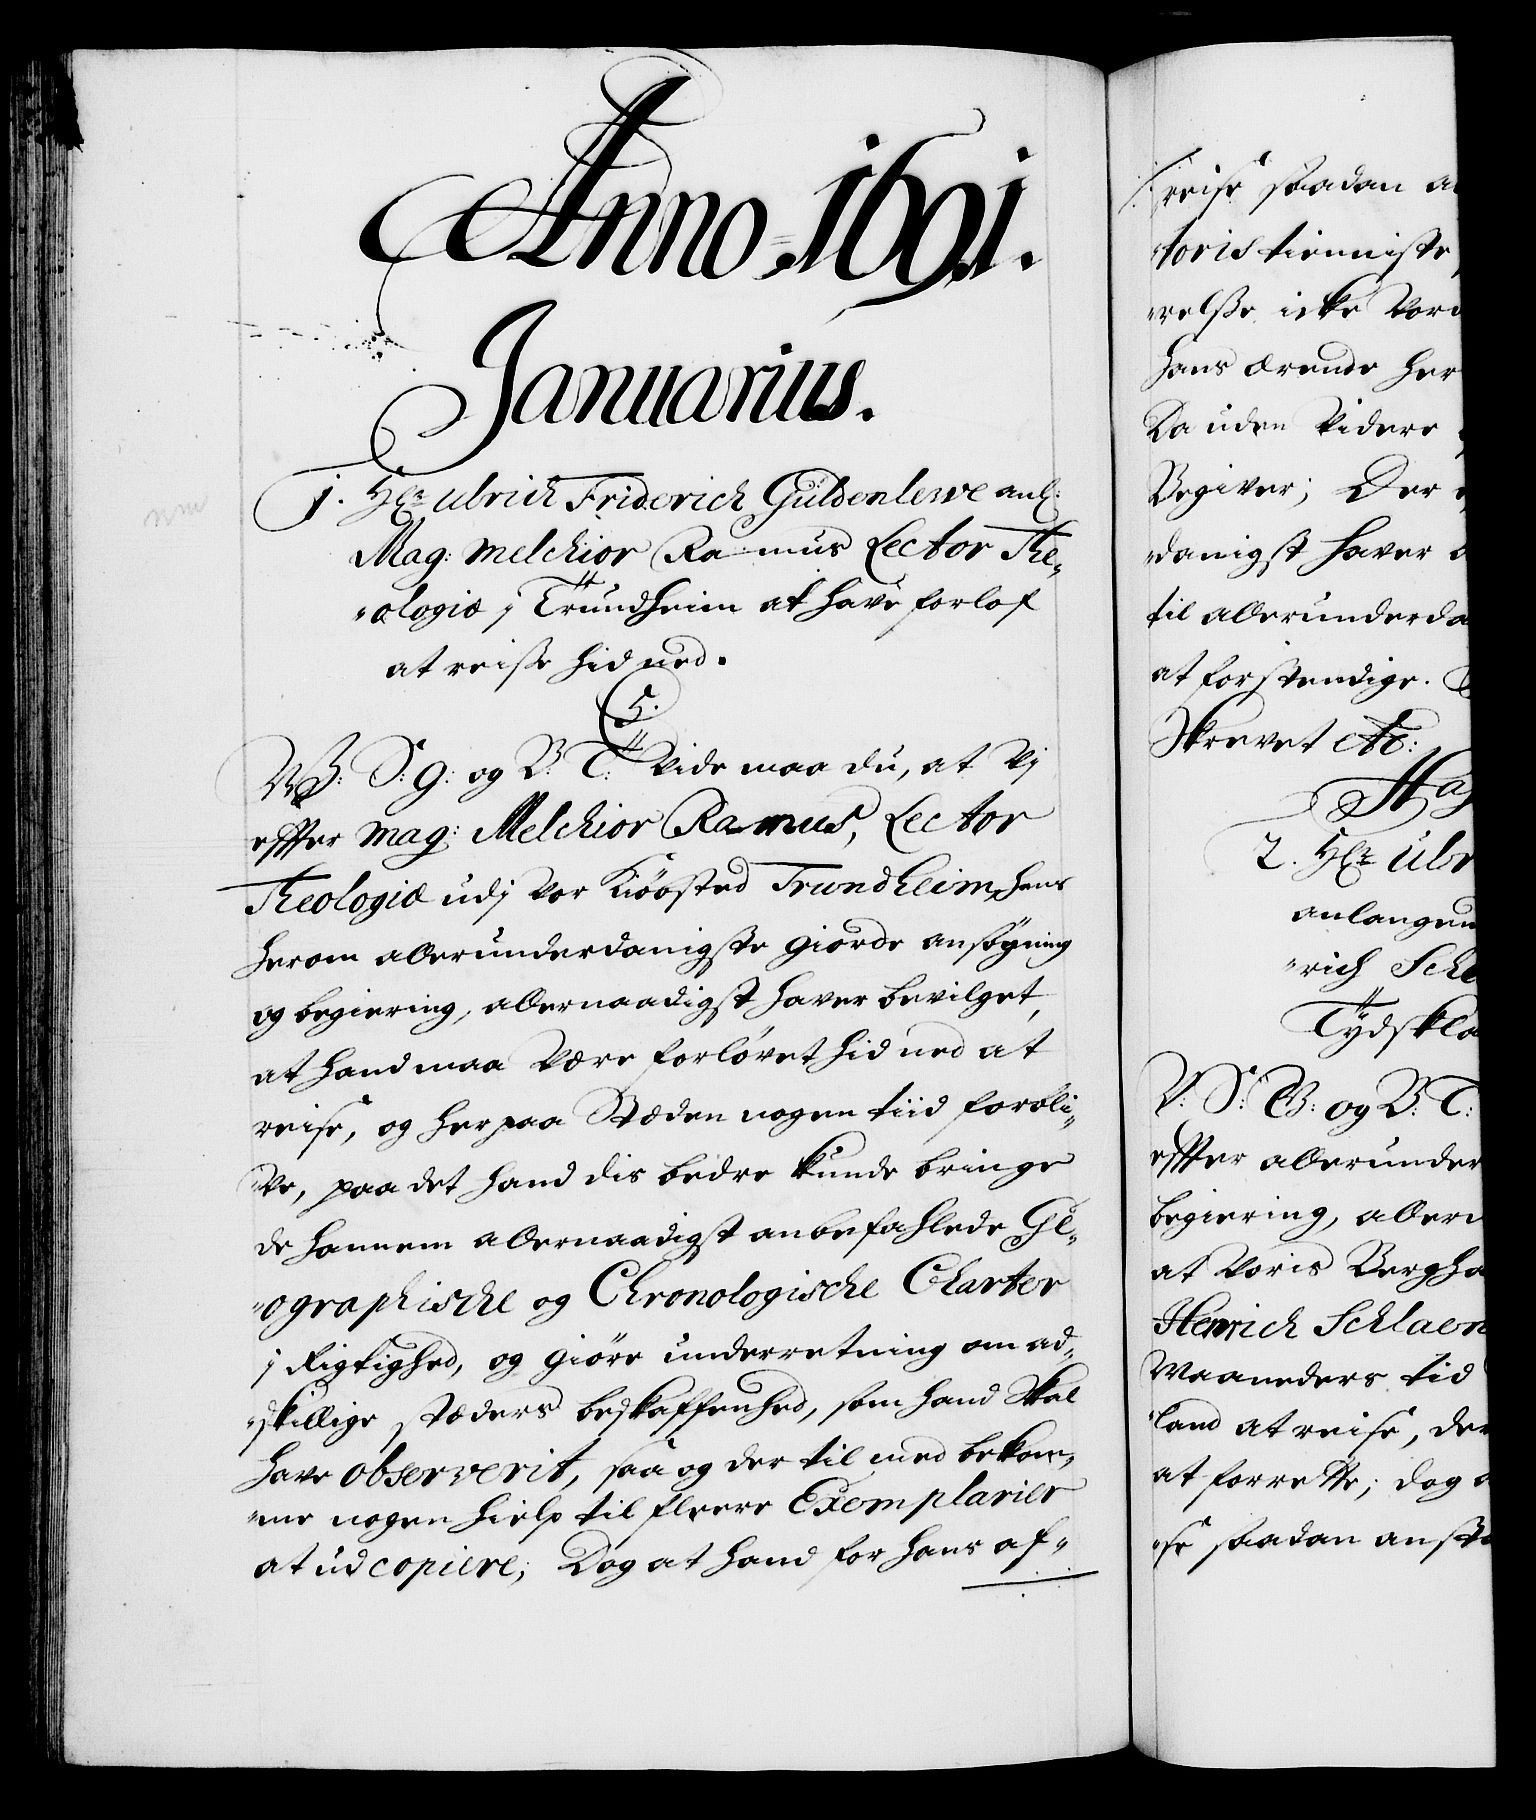 Anno 1691.
Januarius.
1. Hr: Ulrich Friderich Güldenlewe anl:
Mag: Melchior Ramus Lector The-
-ologiæ j Trundheim at have forlof
at reisse hid ned.
C5:
V: S: G: og B: T: Vide maa du, at Vj
effter Mag: Melchior Ramus, Lector
Theologiæ udj Vor Kiøbsted Trundheim, hans
herom allerunderdanigste giorde ansøgning
og begiering, allernaadigst haver bevilget,
at hand maa være forløvet hid ned at
reise, og her paa Stæden nogen tiid forbli-
-ve, paa det hand dis bedre kunde bringe
de hannem allernaadigst anbefahlede Ge-
-ographische og Chronologische Charter
j Rigtighed, og giøre underretning om ad-
-skillige stæders beskaffenhed, som hand Skal
have observerit, saa og der til med bekom-
-me nogen hielp til fleere Exemplarier
at udcopiere; Dog at hand for hans af-
reise saadan
-toris tienniste
-relsse icke
hans ærende her
Da uden Videre
Begiver; Der
-danigst haver
til allerunderda
at forstendige.
Skrevet etc:
Haf
2. Hr: Ulr
anlangen
-rich Schl
Tydskla
V: S: G: og B: T:
effter allerunder
begiering, allern
at Voris Bergha
Henrich Schlaen
Maaneders tid
land at reise, der
at forrette; dog
-se saadan anst